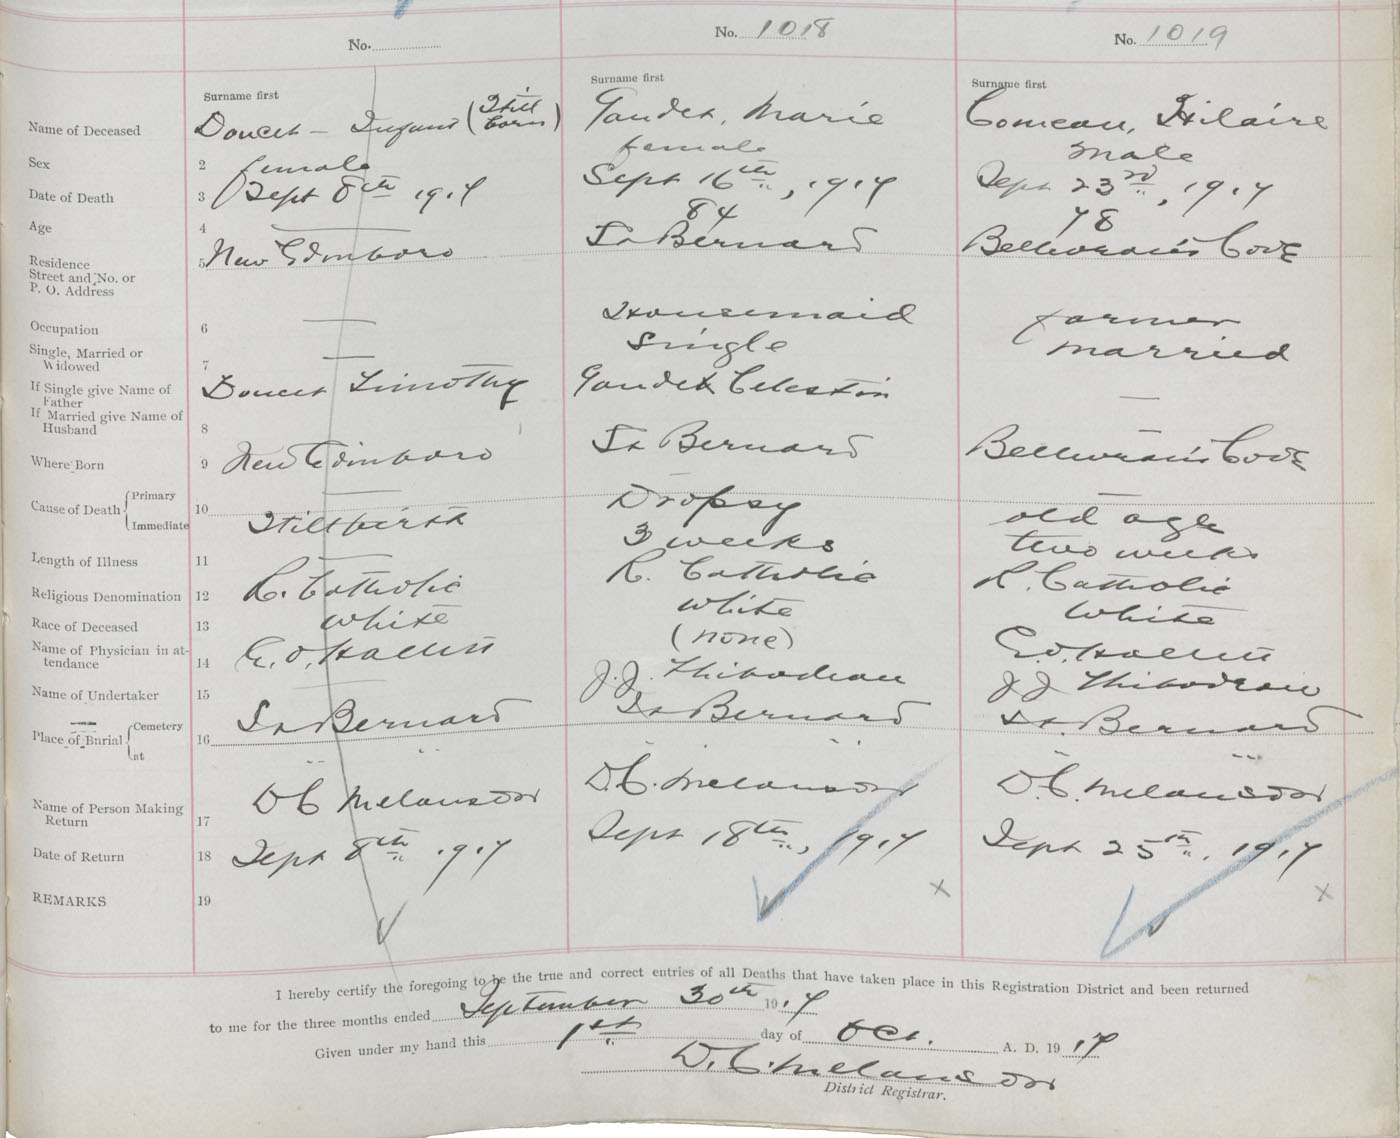 No.
No. 1018
No. 1019
Surname first
Surname first
Surname first
Name of Deceased
Doucet – Infant (Still born)
Gaudet, Marie
Comeau, Hilaire
Sex
2
female
female
male
Date of Death
3
Sept 8th 1917
Sept 16th, 1917
Sept 23rd, 1917
Age
4
84
78
Residence
Street and No. or
P. O. Address
5
New Edinboro
St Bernard
Belliveau's Cove
Occupation
6
Housemaid
farmer
Single, Married or
Widowed
7
Single
married
If Single give Name of
Father
If Married give Name of
Husband
8
Doucet Timothy
Gaudet Celestin
Where Born
9
New Edinboro
St Bernard
Belliveau's Cove
Cause of Death { Primary
Immediate
10
Stillbirth
Dropsy
old age
Length of Illness
11
3 weeks
two weeks
Religious Denomination
12
R. Catholic
R. Catholic
R. Catholic
Race of Deceased
13
White
White
White
Name of Physician in at-
tendance
14
(none)
Name of Undertaker
15
J. J. Thibodeau
J J Thibodeau
Place of Burial { Cemetery
at
16
St Bernard
St Bernard
St. Bernard
Name of Person Making
Return
17
D C Melanson
D. C. Melanson
D. C. Melanson
Date of Return
18
Sept 8th 1917
Sept 18th, 1917
Sept 25th, 1917
REMARKS
19
x
x
I hereby certify the foregoing to be the true and correct entries of all Deaths that have taken place in this Registration District and been returned
to me for the three months ended September 30th 1917
Given under my hand this 1st day of Oct. A. D. 19 17
D. C. Melanson
District Registrar.